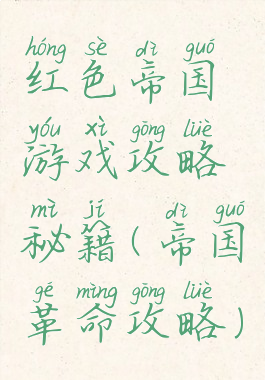 hóng sè dì guó
红色帝国
yóu xì gōng lüè
游戏攻略
mì jí dì guó
秘籍(帝国
gé mìng gōng lüè
革命攻略)